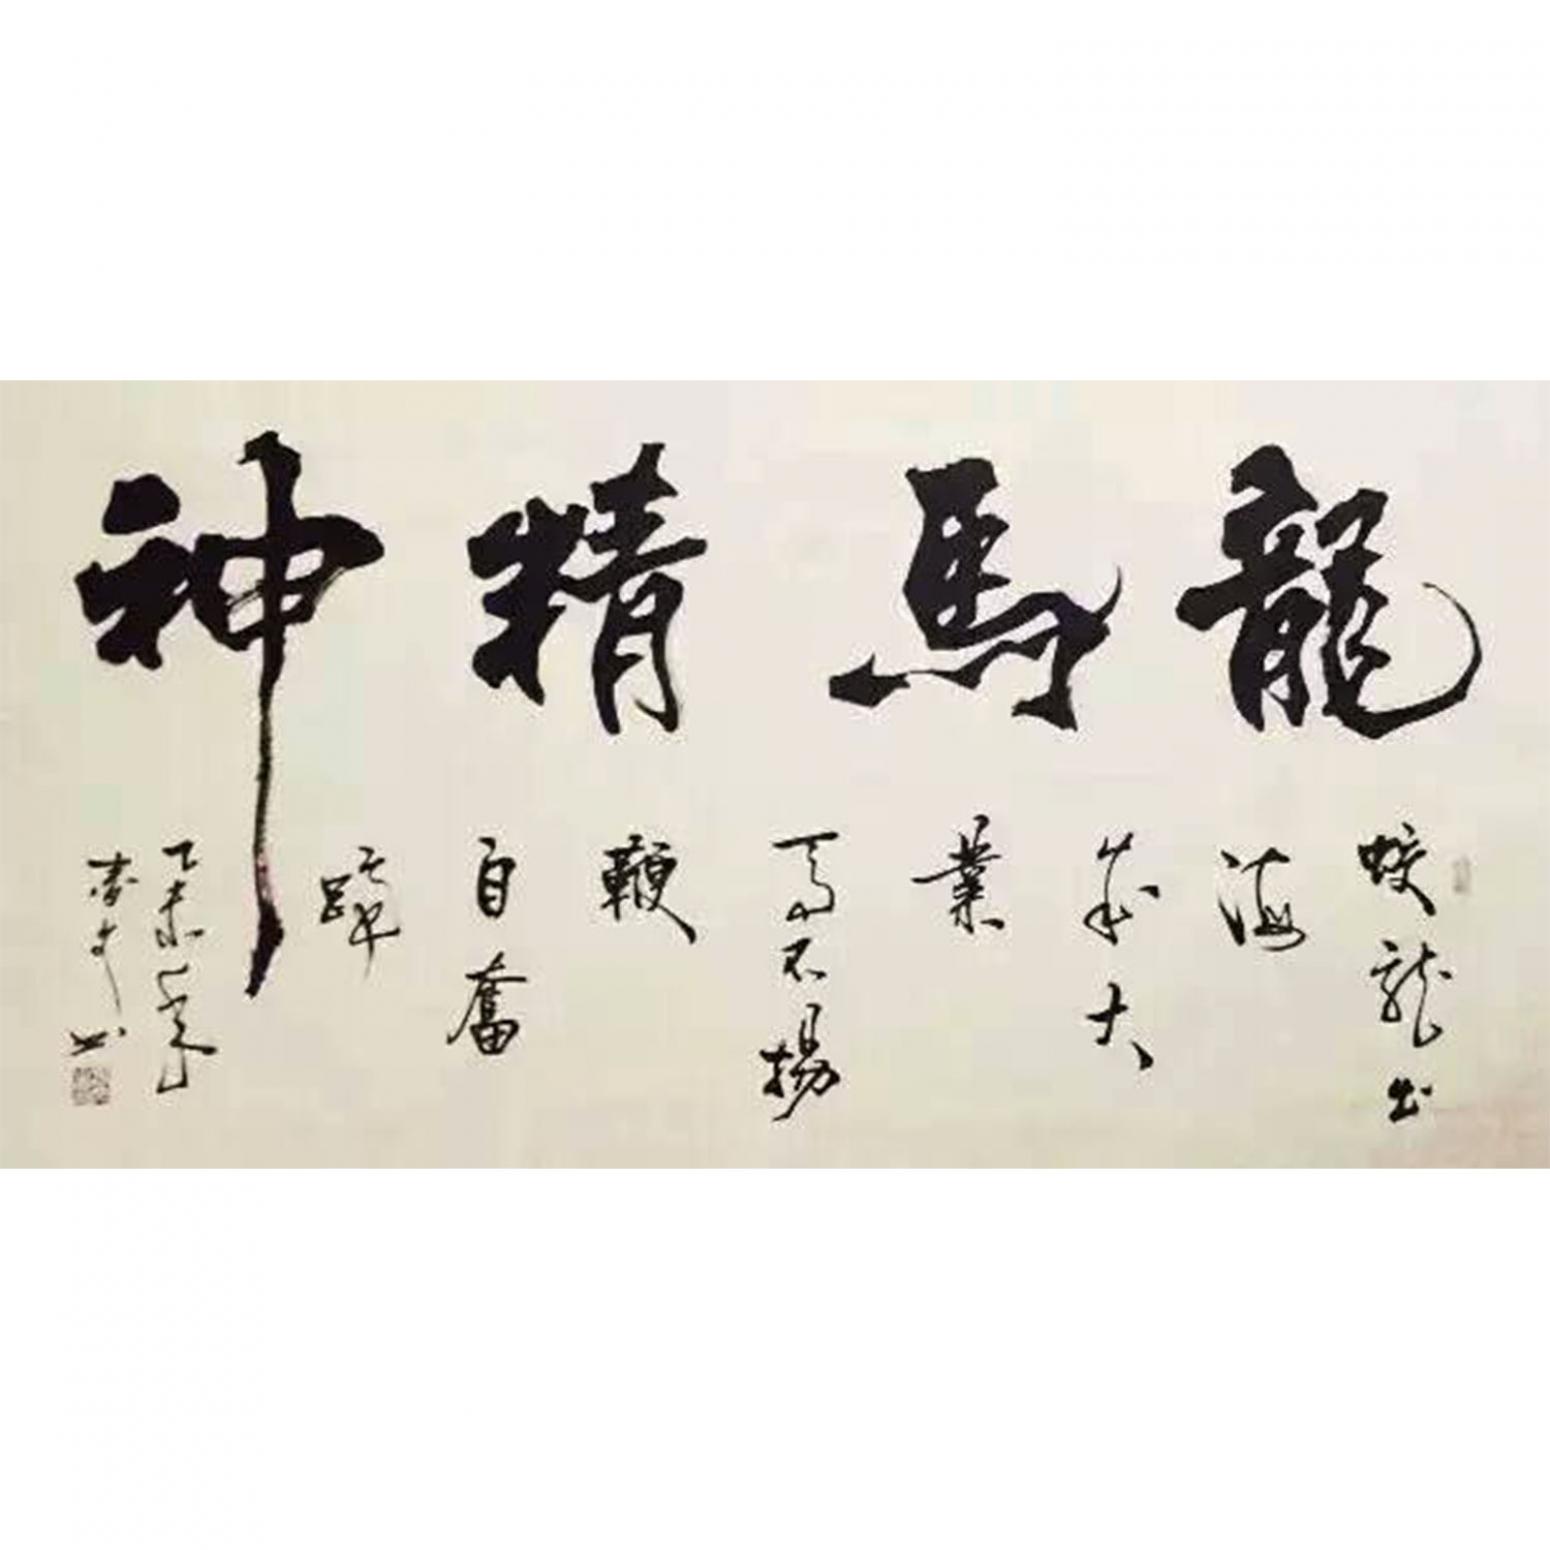 龍馬精神
蛟龍出
海
成大
業
馬不揚
鞭
自奮
蹄
乙未年